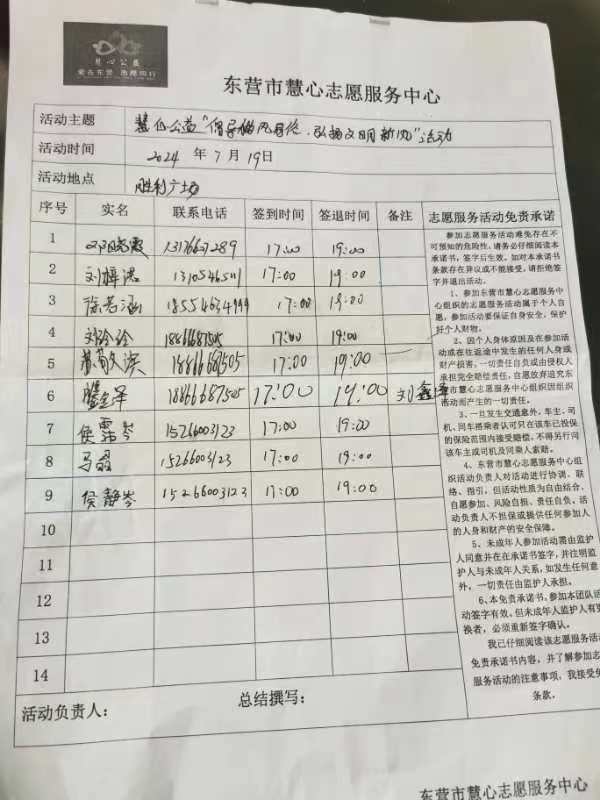 慧心公益
爱在东营 志愿同行
东营市慧心志愿服务中心
活动主题 慧心公益“倡导 弘扬文明新风”活动
活动时间 2024年7月19日
活动地点 胜利广场
序号 实名 联系电话 签到时间 签退时间 备注 志愿服务活动免责承诺
1 13176627289 17:00 19:00
2 17:00 19:00
3 徐若涵 18554634999 17:00 19:00
4 刘玲玲 17:00 19:00
5 17:00 19:00
6 17:00 19:00 刘鑫泽
7 侯霈岑 15266003123 17:00 19:00
8 15266003123 17:00 19:00
9 侯静岑 15266003123 17:00 19:00
10
11
12
13
14
参加志愿服务活动难免存在不
可预知的危险性，请务必仔细阅读本
承诺书，签字后生效。如对本承诺书
条款存在异议或不能接受，请拒绝签
字并退出活动。
1、参加东营市慧心志愿服务中
心组织的志愿服务活动属于个人自
愿，参加活动要保证自身安全，保护
好个人财物。
2、因个人身体原因及在参加活
动或在往返途中发生的任何人身或
财产损害，一切责任自负或由侵权人
承担完全赔偿责任，自愿放弃追究东
营市慧心志愿服务中心组织因组织
活动而产生的一切责任。
3、一旦发生交通意外，车主、司
机、同车搭乘者认可只在该车已投保
的保险范围内接受赔偿，不得另行向
该车主或司机及同乘人索赔。
4、东营市慧心志愿服务中心组
织活动负责人对活动进行协调、联
络、指引，但活动性质为自由结合、
自愿参加、风险自担、责任自负。活
动负责人不担保或提供任何参加人
的人身和财产的安全保障。
5、未成年人参加活动需由监护
人同意并在在承诺书签字，并注明监
护人与未成年人关系，如发生任何意
外，一切责任由监护人承担。
6、本免责承诺书，参加本团队活
动签字有效，但未成年人监护人有更
换者，必须重新签字确认。
我已仔细阅读该志愿服务活动
免责承诺书内容，并了解参加志
服务活动的注意事项，我接受免
条款。
活动负责人： 总结撰写：
东营市慧心志愿服务中心